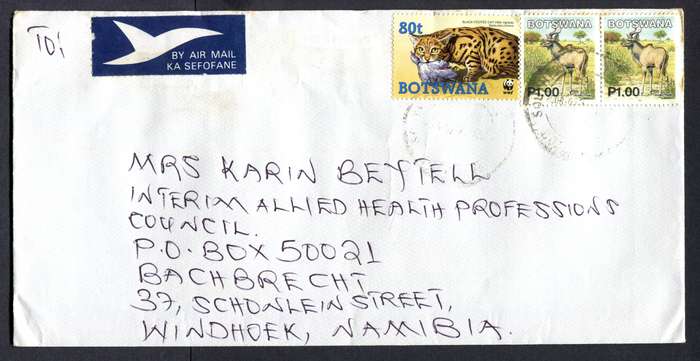 TO:
BY AIR MAIL
KA SEFOFANE
BLACK-FOOTED CAT
80t
BOTSWANA
WWF
BOTSWANA
P1.00
BOTSWANA
P1.00
MRS KARIN BEYTELL
INTERIM ALLIED HEALTH PROFESSIONS
COUNCIL.
P.O. BOX 50021
BACHBRECHT
37, SCHONLEIN STREET,
WINDHOEK, NAMIBIA.